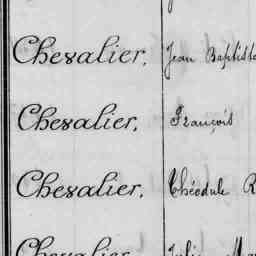 Chevalier, Jean Baptiste
Chevalier, François
Chevalier, Théodule R
Chevalier Julie